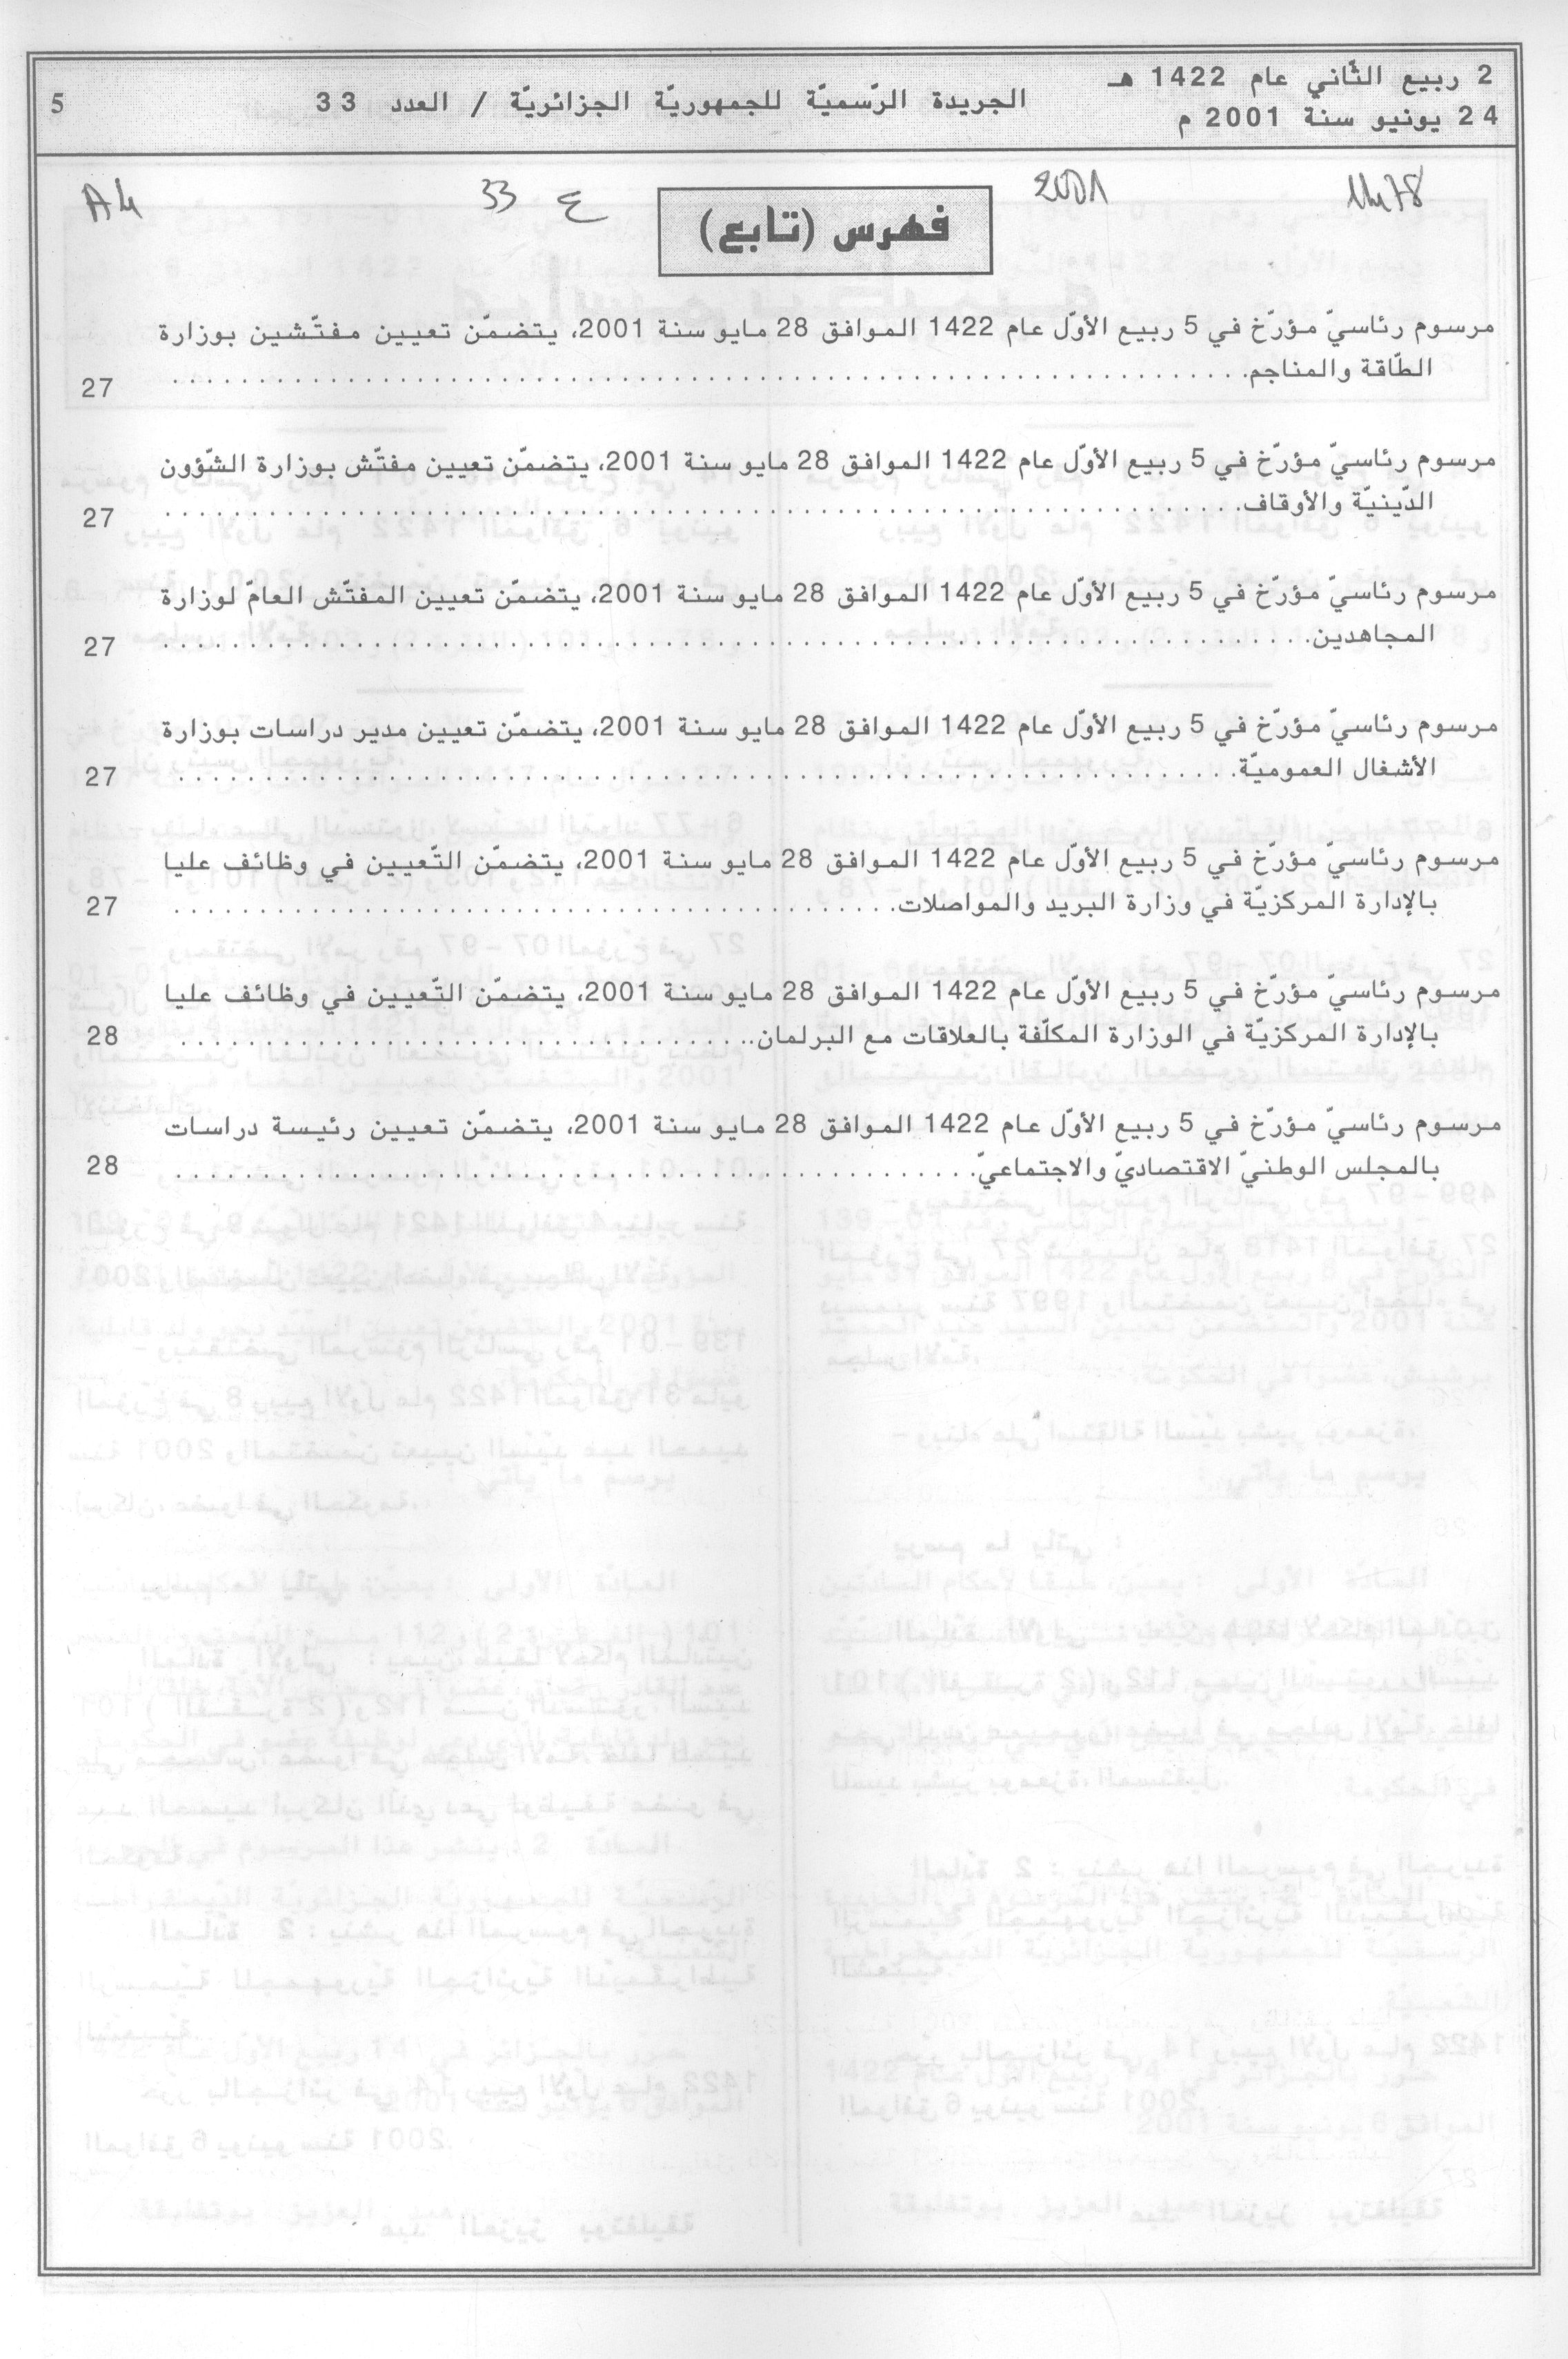 2 ربيع الثّاني عام 1422 هـ
24 يونيو سنة 2001 م
الجريدة الرّسميّة للجمهوريّة الجزائريّة / العدد 33
5
2001
ع 33
A4
فهرس (تابع)
مرسوم رئاسيّ مؤرّخ في 5 ربيع الأوّل عام 1422 الموافق 28 مايو سنة 2001، يتضمّن تعيين مفتّشين بوزارة
الطّاقة والمناجم. . . . . . . . . . . . . . . . . . . . . . . . . . . . . . 27
مرسوم رئاسيّ مؤرّخ في 5 ربيع الأوّل عام 1422 الموافق 28 مايو سنة 2001، يتضمّن تعيين مفتّش بوزارة الشّؤون
الدّينيّة والأوقاف. . . . . . . . . . . . . . . . . . . . . . . . . . . . . . 27
مرسوم رئاسيّ مؤرّخ في 5 ربيع الأوّل عام 1422 الموافق 28 مايو سنة 2001، يتضمّن تعيين المفتّش العامّ لوزارة
المجاهدين. . . . . . . . . . . . . . . . . . . . . . . . . . . . . . 27
مرسوم رئاسيّ مؤرّخ في 5 ربيع الأوّل عام 1422 الموافق 28 مايو سنة 2001، يتضمّن تعيين مدير دراسات بوزارة
الأشغال العموميّة. . . . . . . . . . . . . . . . . . . . . . . . . . . . . . 27
مرسوم رئاسيّ مؤرّخ في 5 ربيع الأوّل عام 1422 الموافق 28 مايو سنة 2001، يتضمّن التّعيين في وظائف عليا
بالإدارة المركزيّة في وزارة البريد والمواصلات. . . . . . . . . . . . . . . . . . . . 27
مرسوم رئاسيّ مؤرّخ في 5 ربيع الأوّل عام 1422 الموافق 28 مايو سنة 2001، يتضمّن التّعيين في وظائف عليا
بالإدارة المركزيّة في الوزارة المكلّفة بالعلاقات مع البرلمان. . . . . . . . . . . . . . . . . . . . 28
مرسوم رئاسيّ مؤرّخ في 5 ربيع الأوّل عام 1422 الموافق 28 مايو سنة 2001، يتضمّن تعيين رئيسة دراسات
بالمجلس الوطنيّ الاقتصاديّ والاجتماعيّ. . . . . . . . . . . . . . . . . . . . 28